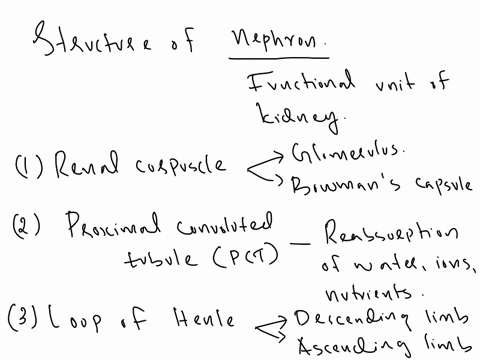 Structure of Nephron.
Functional unit of
kidney.
(1) Renal corpuscle
Glomerulus.
Bowman's capsule
(2) Proximal convoluted
tubule (PCT) — Reabsorption
of water, ions,
nutrients.
(3) Loop of Henle
Descending limb
Ascending limb